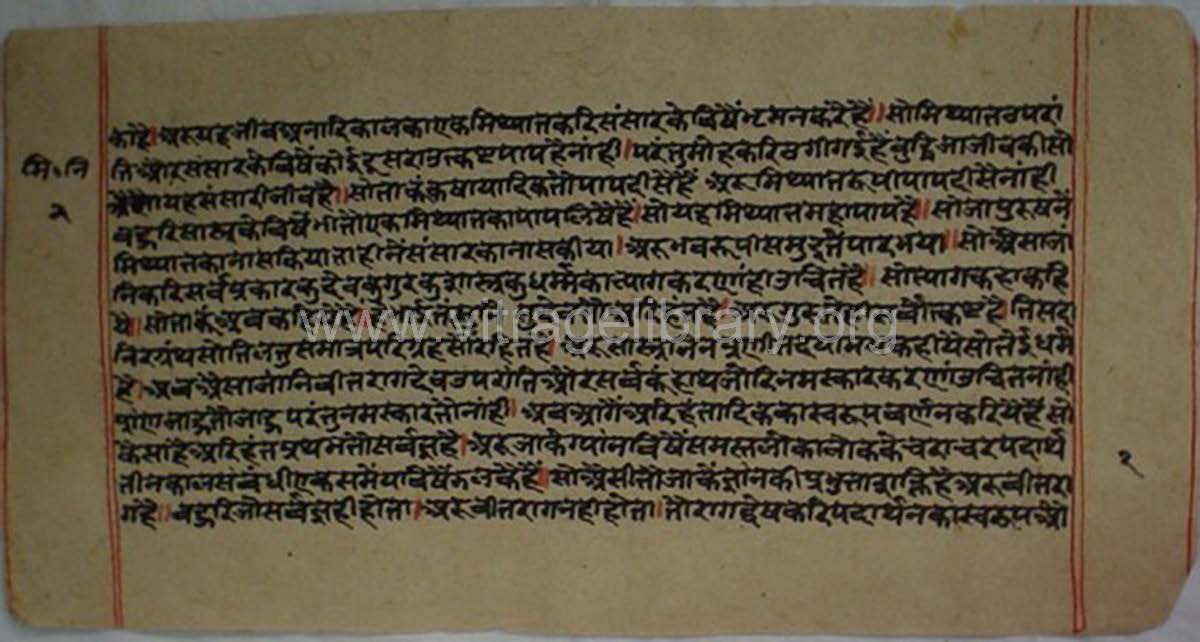 कौ है। अरु यह जीव अनादि काल का एक मिथ्यात करि संसार के विषैं भ्रमन करै है॥ सो मिथ्यात उपरां
ति और संसार के विषैं कोई दूसरा उत्कृष्ट पाप है नांही। परंतु मोह करि ठगी गई है बुद्धि जा जीव की सो
मि॰ नि
२
यह संसारी जीव है॥ सो ता कूं कषायादिक तो पाप दीसै है अरु मिथ्यात रूपी पाप दीसै नांही
बहुरि सास्त्र के विषैं भी तो एक मिथ्यात का पाप लिषै है॥ सो यह मिथ्यात महा पाप है॥ सो जा पुरुष नैं
मिथ्यात का नास किया ता ही नें संसार का नास कीया। अरु भव रूपी समुद्र तैं पार भया॥ सो औसा जां
नि करि सर्व प्रकार कुदेव कुगुर कुशास्त्र कुधर्म्म का त्याग करणां ही उचित है॥ सो त्याग कहा कहि
ये। सो ता कूं अब क
तिसदा
निरग्रंथ सो तिल तुस मात्र परिग्रह सौं रहित है। अरु सास्त्र जिन प्रणीत दया मय कहीये सो तेई धर्म
है। अब औसा जांनि वीतराग देव उपरांति और सर्व कूं हाथ जोरि नमस्कार करणां उचित नांही
प्रांण जाहु तो जाहु परंतु नमस्कार तो नांही। अब आगैं अरिहंतादिक का स्वरूप वर्णन करिये है सो
कैसा है अरिहंत प्रथम तो सर्वज्ञ है। अरु जा के ग्यांन विषैं समस्त लोकालोक के चराचर पदार्थ
तीन काल संबंधी एक समें या विषैं झलके है॥ सो औसी तो जा के ज्ञान की प्रभुता शक्ति है अरु वीतरा
२
ग है॥ बहुरि जो सर्वज्ञ ही होता। अरु वीतराग नही होता। तो राग द्वेष करि पदार्थन का स्वरूप औ
www.vitragelibrary.org